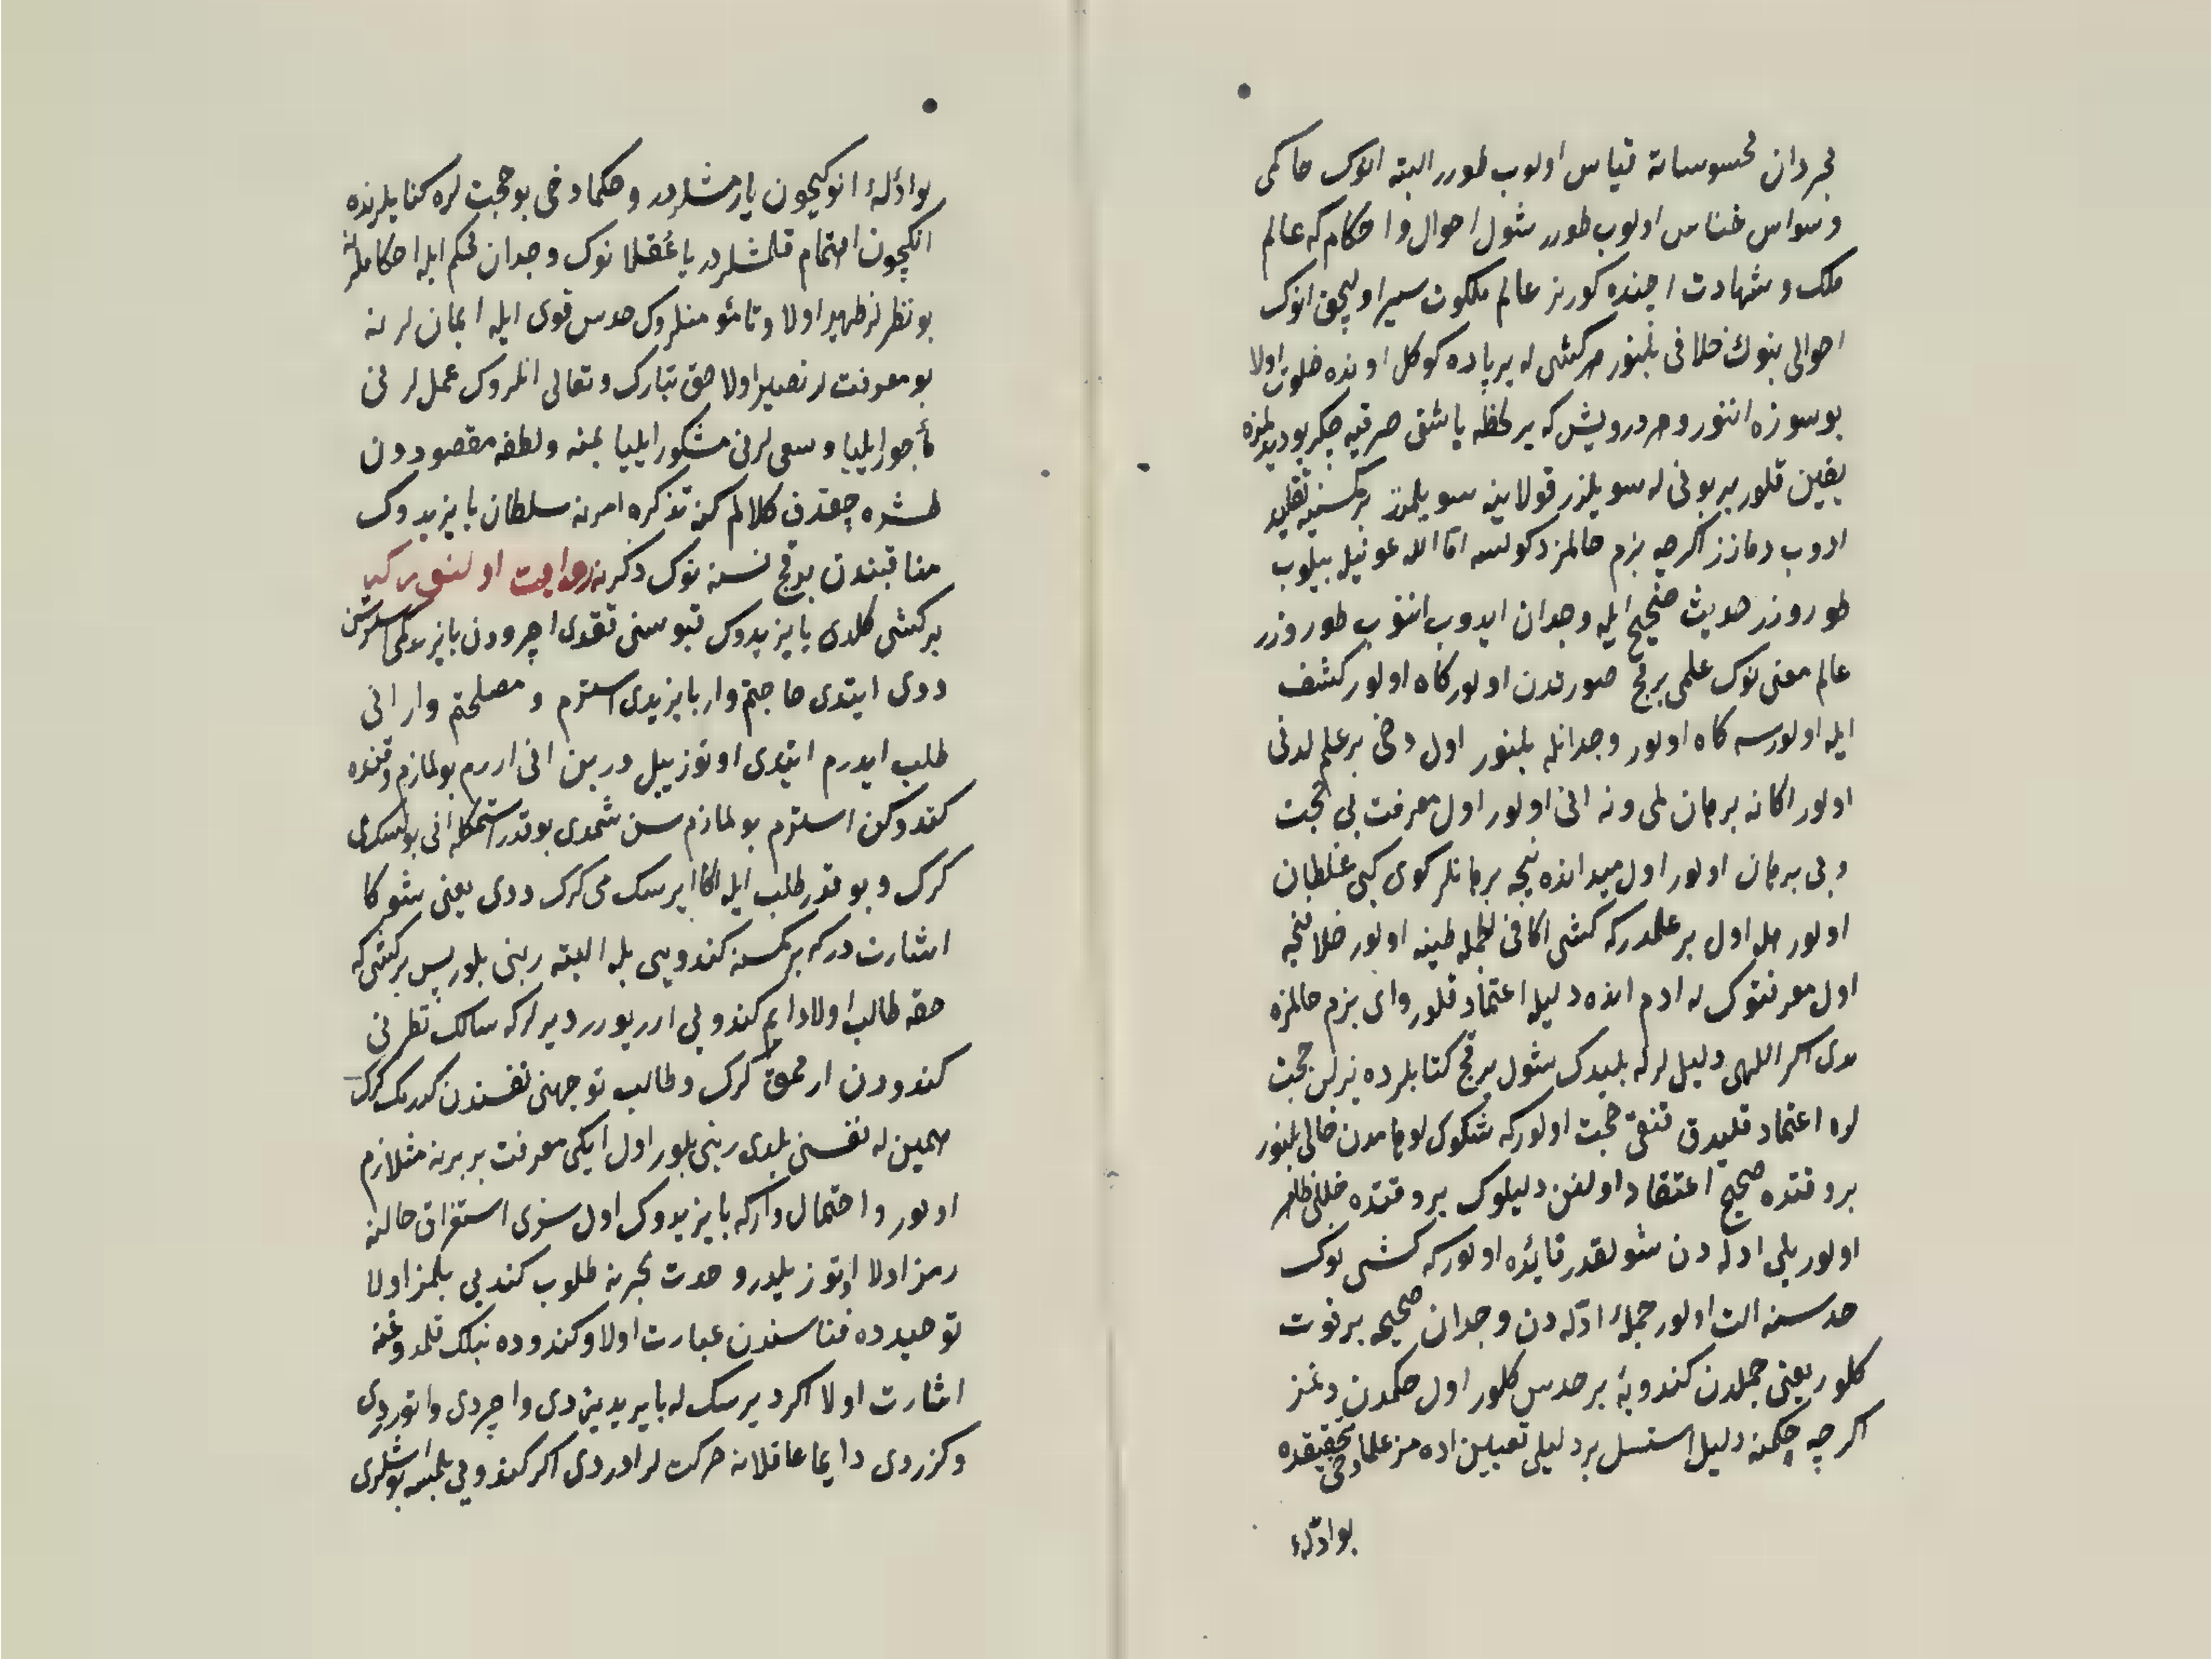 مجردان محسوساته قیاس اولوب طورر البته انوك حاكمی
وسواس خناس اولوب طورر شول احوال و احكام كه عالم
ملك و شهادت اچنده كورنر عالم ملكوت سیر اولیجق انوك
احوالی بنوك خلافی بلنور هر كشی له بر پاده كوكل اونده خلوت اولا
بو سوزه اننور و هر درویش كه بر لحظه یا شقی صرقیه چكر بو دیدلمزه
یقین قلور بز بونی له سویلرز قولاینه سویلمزز بر كسنیه تقلید
ادوب دمازز اكرچه بزم حالمز دكولسه اما الله عونیله بیلوب
طوروزز حدیث صحیح ایله وجدان ایدوب اننوب طوروزر
عالم معنی نوك علمی بر قچ صورتدن اولور كاه اولور كشف
ایله اولورسه كاه اولور وجدانله بلنور اول دخی بر علم لدنی
اولور اكا نه برهان لمی و نه انی اولور اول معرفت بی حجت
و بی برهان اولور اول میدانده نیجه برهانلر كوی كبی غلطان
اولور هله اول بر علمدر كه كشی اكا فی الجمله طینه اولور خلا نیجه
اول معرفتوك له ادم انده دلیله اعتماد قلور وای بزم حالمزه
دی اكر اللهی دلیل لرله بلیدك شول بر قچ كتابلرده یزلن حجت
لره اعتماد قلیدق قنقی حجت اولور كه شكوك اوهامدن خالی بلنور
بر وقتده صحیح اعتقاد اولنن دلیلوك بر وقتده خللی ظاهر
اولور بلی ادله دن شولقدر فایده اولور كه كشی نوك
حدسنه الت اولور جمله ادله دن وجدان صحیحه بر قوت
كلور یعنی جمله‌دن كندویه بر حدس كلور اول حكمدن دنمز
اكرچه حكمنه دلیل استسل بر دلیلی تعیین اده مز علما دخی تحقیقده
بو ادله‌ء
بو ادله‌ء انوكیچون یازمشلردر و حكما دخی بو حجت لره كتابلرنده
انكچون اهتمام قلمشلردر یا عقلانوك وجدان محكم ایله احكاملرنه
بو نظرلر ظهیر اولا و تا مؤمنلروك حدس قوی ایله ایمان لرنه
بو معرفت لر نصیر اولا حق تبارك و تعالی انلروك عمل لرنی
مأجور ایلیا و سعی لرنی مشكور ایلیا بمنه و لطفه مقصوددن
طشره چقدق كلالم كنه تذكره امرنه سلطان بایزیدوك
مناقبندن بر قچ نسنه نوك ذكرنه روایت اولنور كی
بر كشی كلدی بایزیدوك قپوسنی ققدی اچرودن بایزید كمی استرسن
ددی ایتدی حاجتم وار بایزیدی استرم و مصلحتم وار انی
طلب ایدرم ایتدی اوتوز ییلدر بن انی اررم بولمازم و قنده
كندوكن استرم بولمازم سن شمدی بوقدر استمكله انی بولسكمی
كرك و بو قدر طلب ایله اكا ایرسك می كرك ددی یعنی شوكا
اشارت در كه بر كمسنه كندویی بله البته ربنی بلور پس بر كشی كه
حقه طالب اولا دایم كندویی ارریورر دیرلر كه سالك نظرنی
كندودن ارمق كرك و طالب توجهنی نفسندن كدرمك كرك
همین له نفسنی بلدی ربنی بلور اول ایكی معرفت بر برنه متلازم
اولور و احتمال وار كه بایزیدوك اول سوزی استغراق حالنه
رمز اولا اوتوز یلدر وحدت بحرنه طلوب كندیی بلمز اولا
توحیدده فناسندن عبارت اولا و كندوده نبلك قلمدوغنه
اشارت اولا اكر دیرسك له بایزید یزدی و اچردی و اتوردی
و كزردی دایما عاقلانه حركت لر ادردی اكر كندویی بلمسه بو اشلری